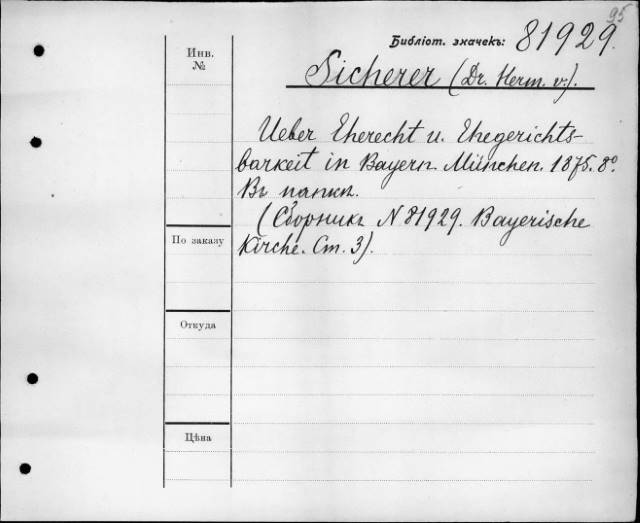 95
Библіот. значекъ: 81929.
Инв.
№
Sicherer (Dr. Herm. v.).
Ueber Eherecht u. Ehegerichts-
barkeit in Bayern. München. 1875. 8º.
Въ папкѣ.
(Сборникъ N 81929. Bayerische
Kirche. Ст. 3).
По заказу
Откуда
Цѣна